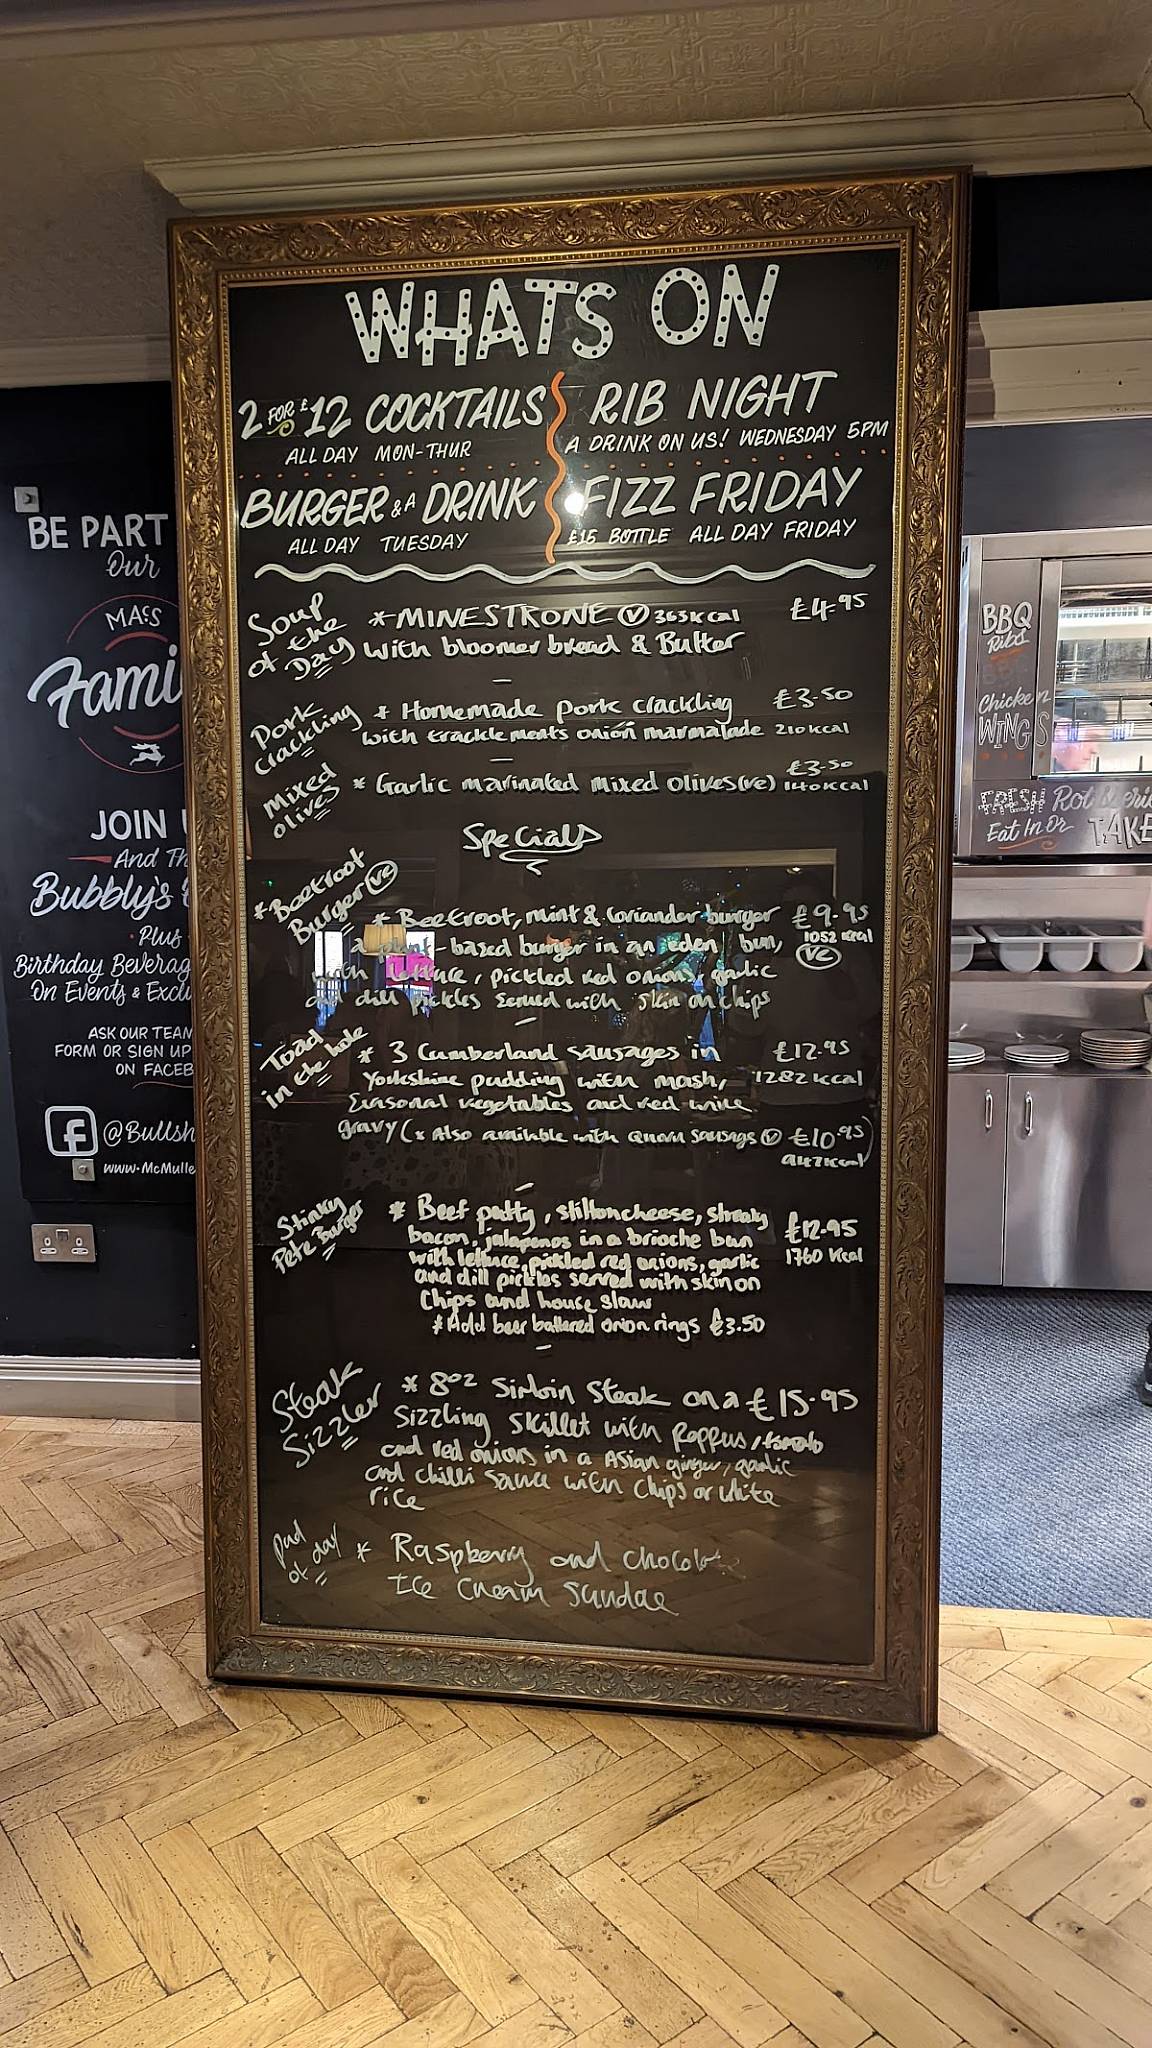 WHATS ON
2 FOR £12 COCKTAILS
ALL DAY MON-THUR
RIB NIGHT
A DRINK ON US! WEDNESDAY 5PM
BURGER & A DRINK
ALL DAY TUESDAY
FIZZ FRIDAY
£15 BOTTLE ALL DAY FRIDAY
Soup
of the
Day
* MINESTRONE (V) 363kcal £4.95
with bloomer bread & Butter
Pork
Crackling
* Homemade pork crackling £3.50
with tracklements onion marmalade 210kcal
Mixed
olives
* Garlic marinated mixed olives (ve) £3.50
140kcal
Specials
* Beetroot
Burger (ve)
* Beetroot, mint & coriander burger £9.95
a plant-based burger in an eden bun, 1052 kcal
with lettuce, pickled red onions, garlic (ve)
and dill pickles served with skin on chips
Toad
in the hole
* 3 Cumberland sausages in £12.95
Yorkshire pudding with mash, 1282 kcal
Seasonal vegetables and red wine
gravy (* Also available with Quorn sausage (V) £10.95)
942kcal
Stinky
Pete Burger
* Beef patty, stilton cheese, streaky £12.95
bacon, jalapenos in a brioche bun 1760 kcal
with lettuce, pickled red onions, garlic
and dill pickles served with skin on
Chips and house slaw
* Add beer battered onion rings £3.50
Steak
Sizzler
* 8oz Sirloin Steak on a £15.95
Sizzling Skillet with Peppers, tomato
and red onions in a Asian ginger, garlic
and chilli sauce with chips or white
rice
Pud
of day
* Raspberry and chocolate
Ice Cream Sundae
BE PART
Our
MACS
Fami
JOIN
And Th
Bubbly's
Plus
Birthday Beverag
On Events & Exclu
ASK OUR TEAM
FORM OR SIGN UP
ON FACEB
@Bullsh
www.McMulle
BBQ
Ribs
Chicken
WINGS
FRESH Rotisserie
Eat In Or TAKE